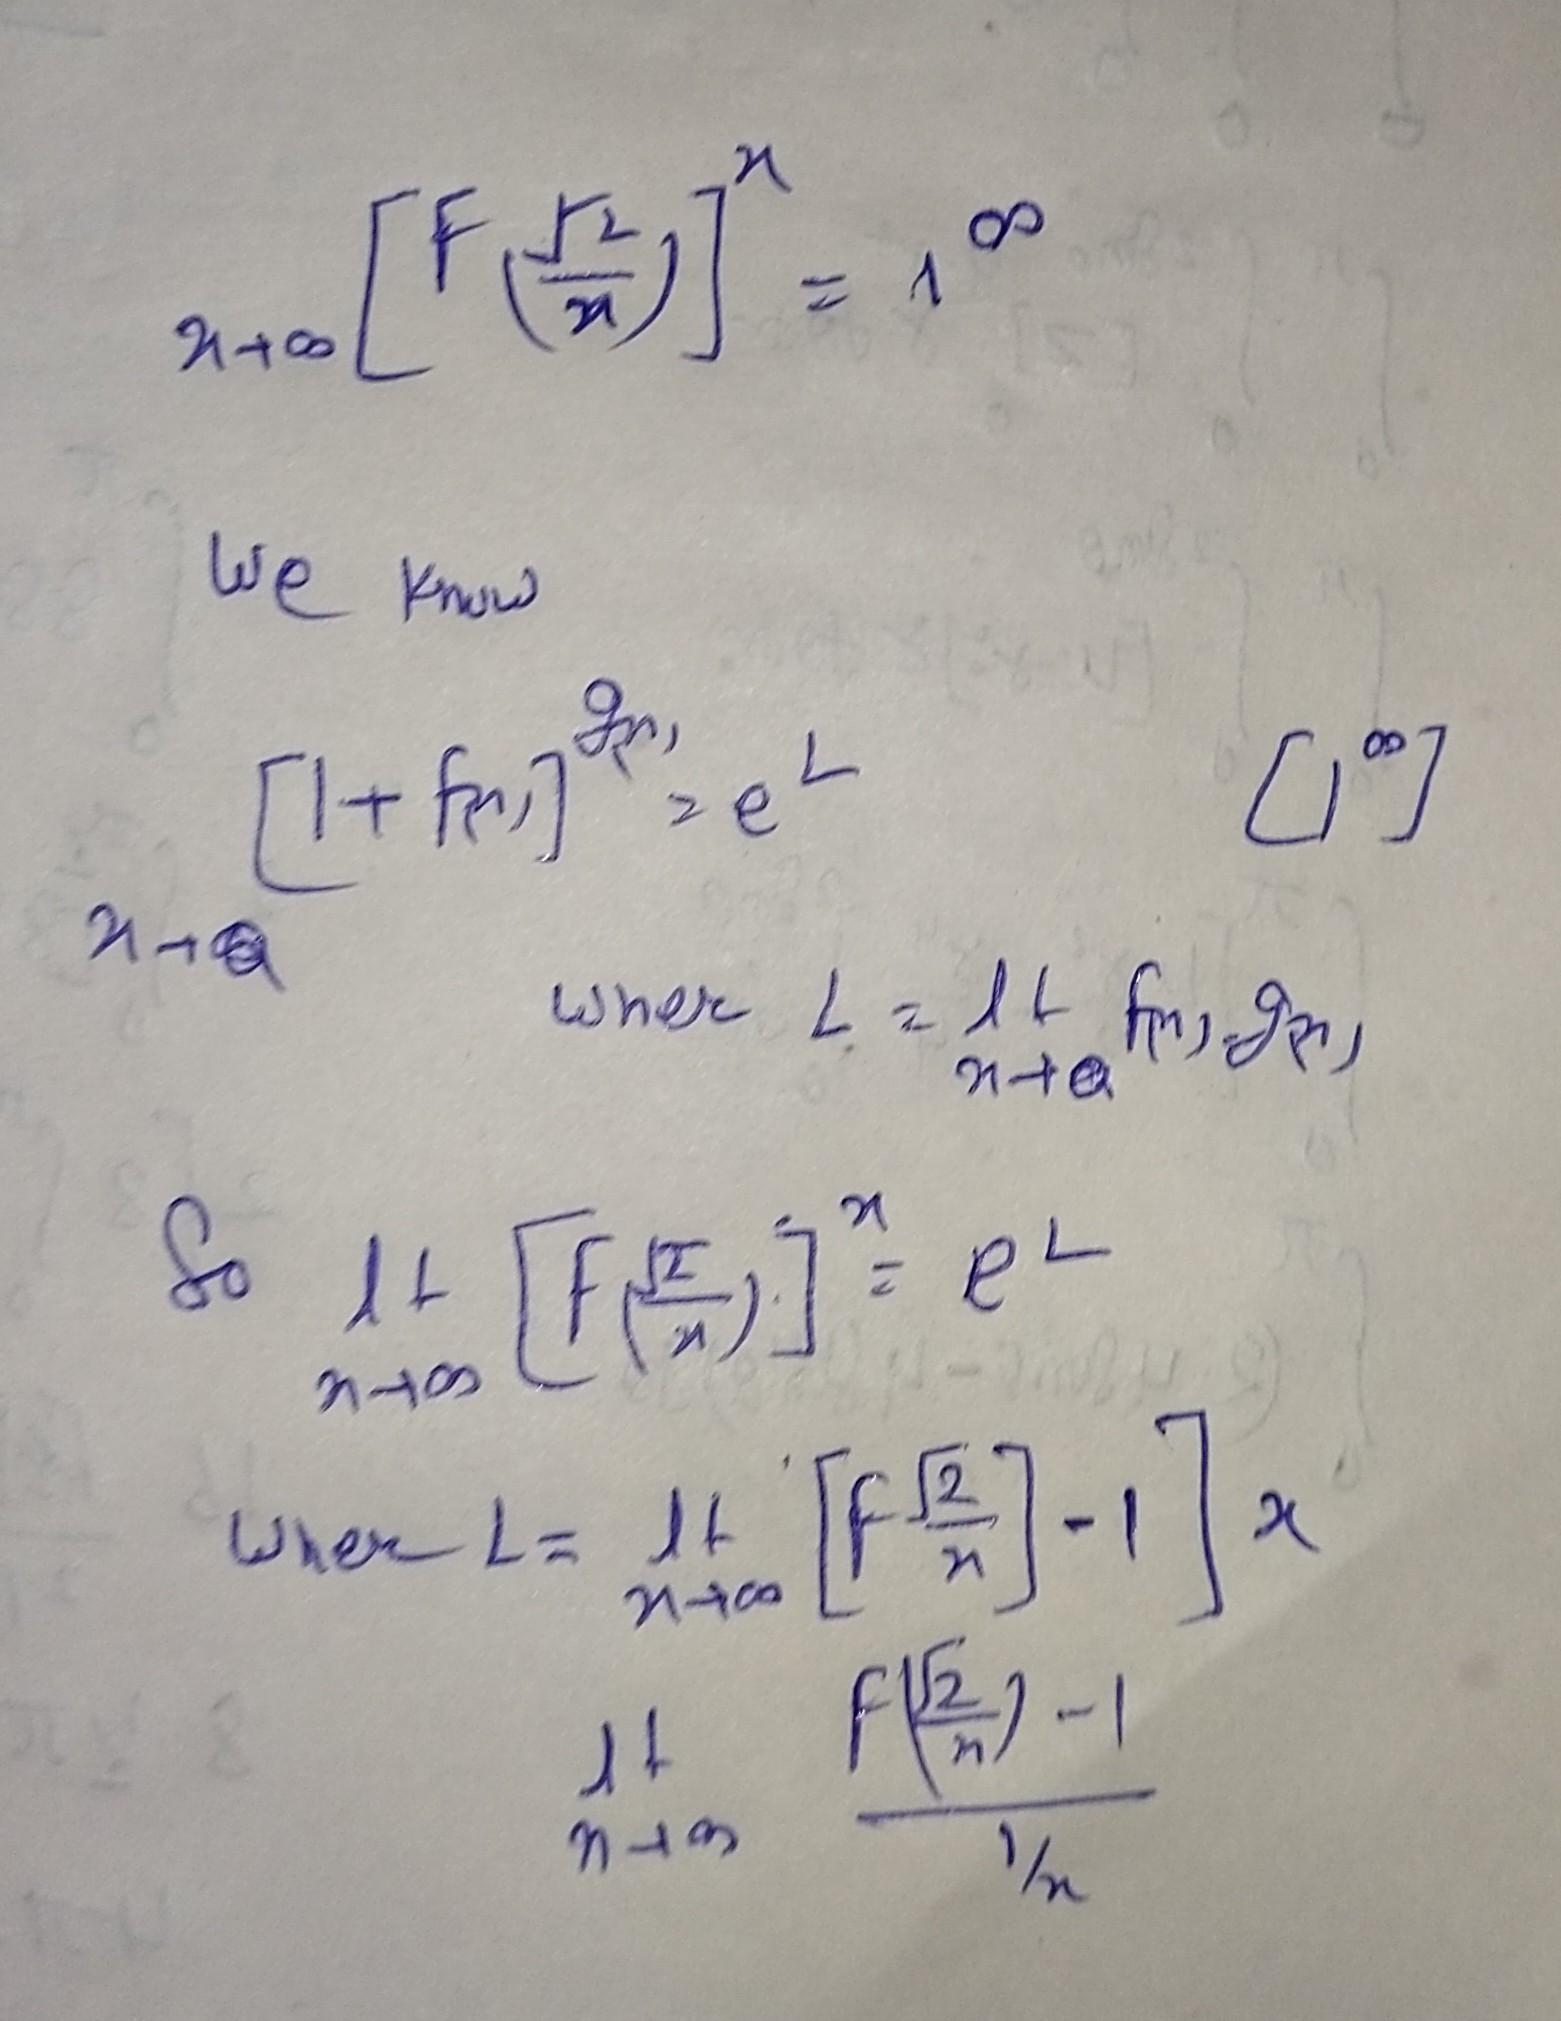 x→∞ [F(√2/x)]^x = 1^∞
We know
[1 + f(x)]^g(x) = e^L [1^∞]
x→a
where L = lt x→a f(x).g(x)
So lt x→∞ [F(√2/x)]^x = e^L
where L = lt x→∞ [F √2/x] - 1] x
lt x→∞ F(√2/x) - 1 / 1/x